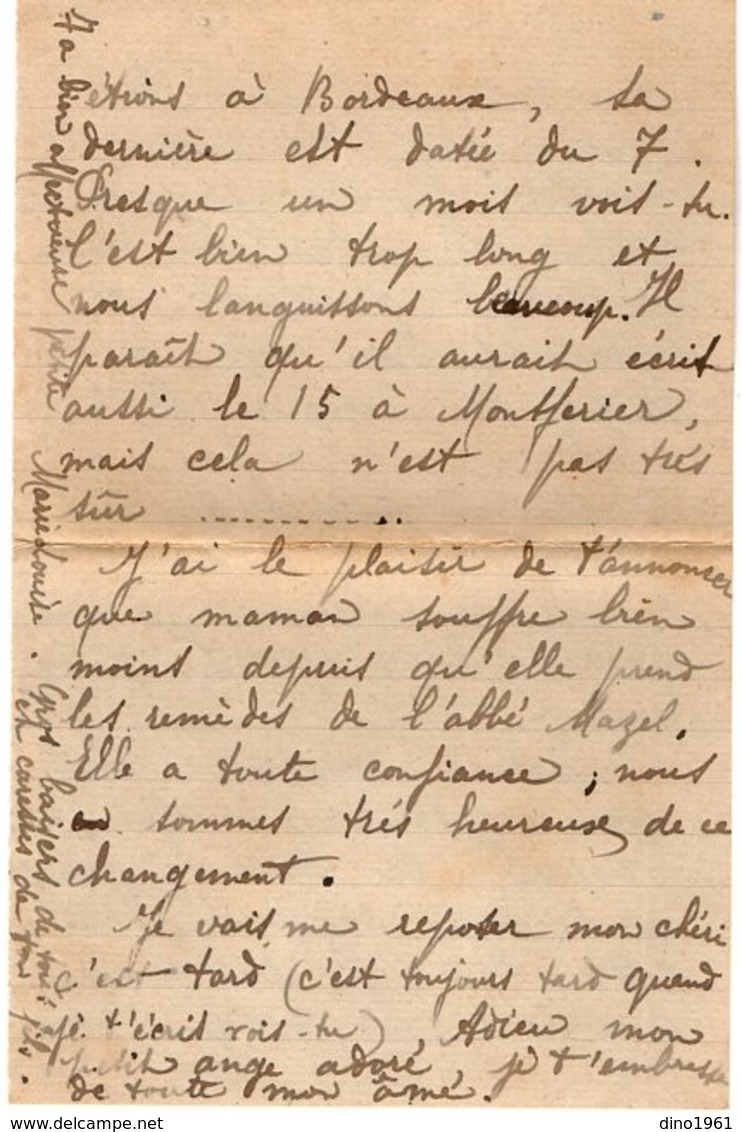 étions à Bordeaux, sa
dernière est datée du 7.
Presque un mois vois-tu.
C'est bien trop long et
nous languissons beaucoup. Il
parait qu'il aurait écrit
aussi le 15 à Montferier,
mais cela n'est pas très
sûr ............
J'ai le plaisir de t'annoncer
que maman souffre bien
moins depuis qu'elle prend
les remèdes de l'abbé Mazel.
Elle a toute confiance ; nous
en sommes très heureuses de ce
changement.
Je vais me reposer mon chéri
c'est tard (c'est toujours tard quand
je t'écris vois-tu), Adieu mon
petit ange adoré, je t'embrasse
de toute mon âme.
Ta bien affectueuse petite Marie Louise. Gros baisers de
et caresses de ton fils.
delcampe.net
dino1961